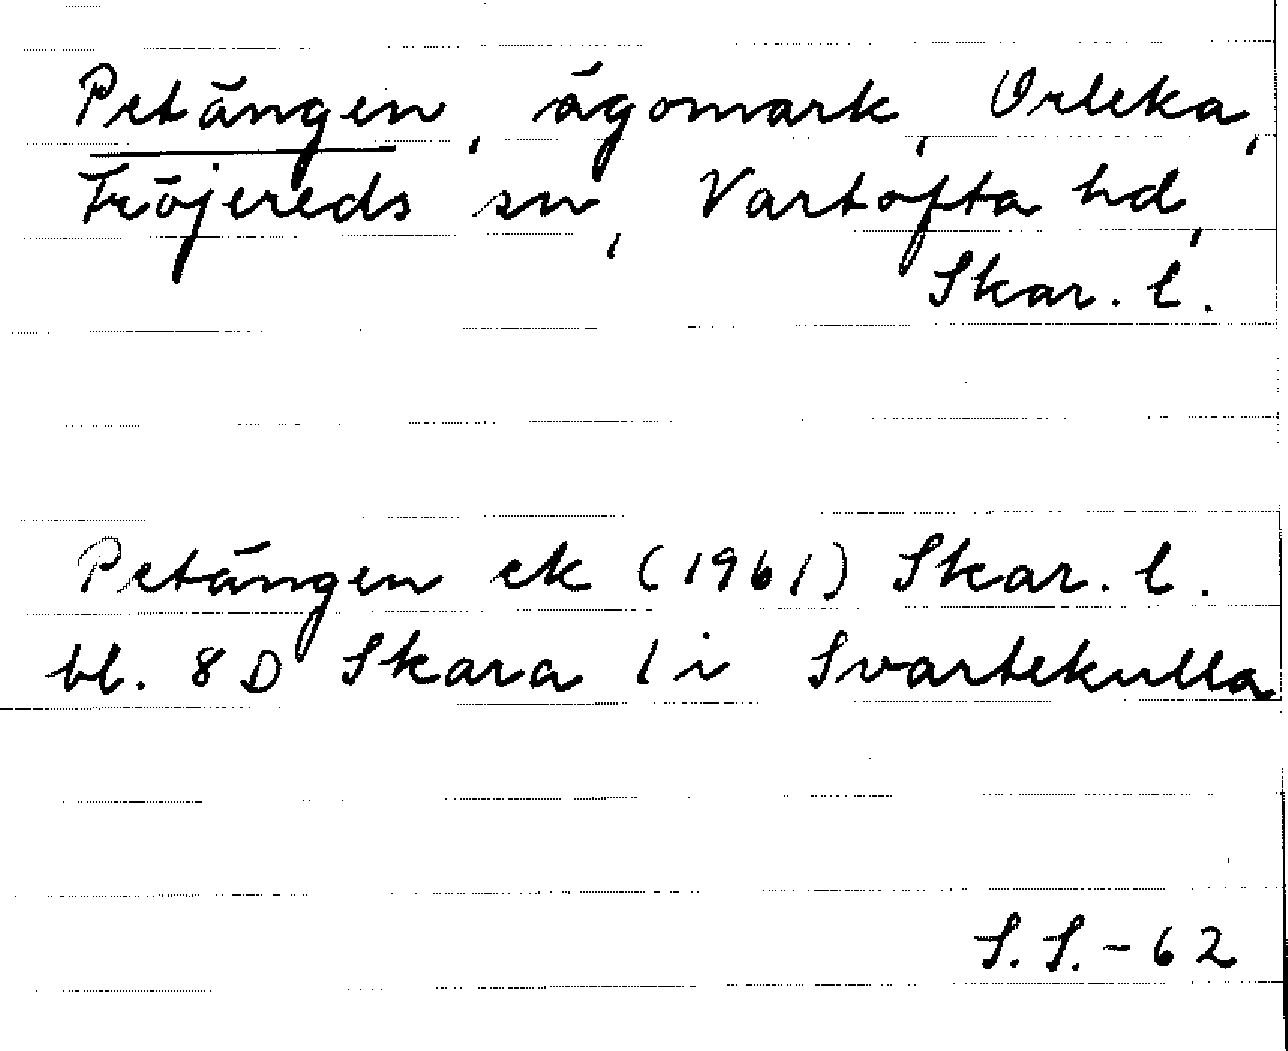 Petängen, ägomark, Orleka,
Fröjereds sn, Vartofta hd,
Skar. l.
Petängen ek (1961) Skar. l.
bl. 8 D Skara 1 i Svartekulla
S.S.-62